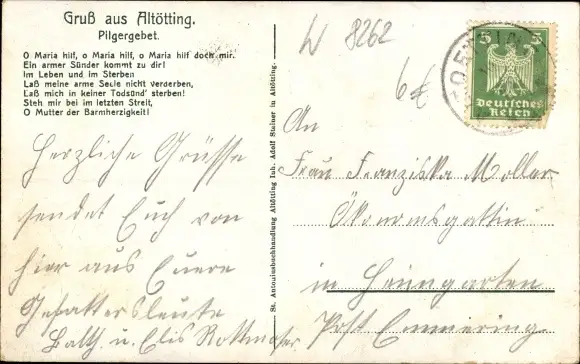 Gruß aus Altötting.
Pilgergebet.
O Maria hilf, o Maria hilf, o Maria hilf doch mir.
Ein armer Sünder kommt zu dir!
Im Leben und im Sterben
Laß meine arme Seele nicht verderben,
Laß mich in keiner Todsünd' sterben!
Steh mir bei im letzten Streit,
O Mutter der Barmherzigkeit!
Herzliche Grüsse
sendet Euch von
hier aus Euere
Gevattersleute
Balth. u. Elis Rottmoser
St. Antoniusbuchhandlung Altötting Inh. Adolf Steiner in Altötting.
W 8262
6€
5 5
Deutsches
Reich
An
Frau Franziska Moller
Ökonomsgattin
in Heimgarten
Post Emmering.